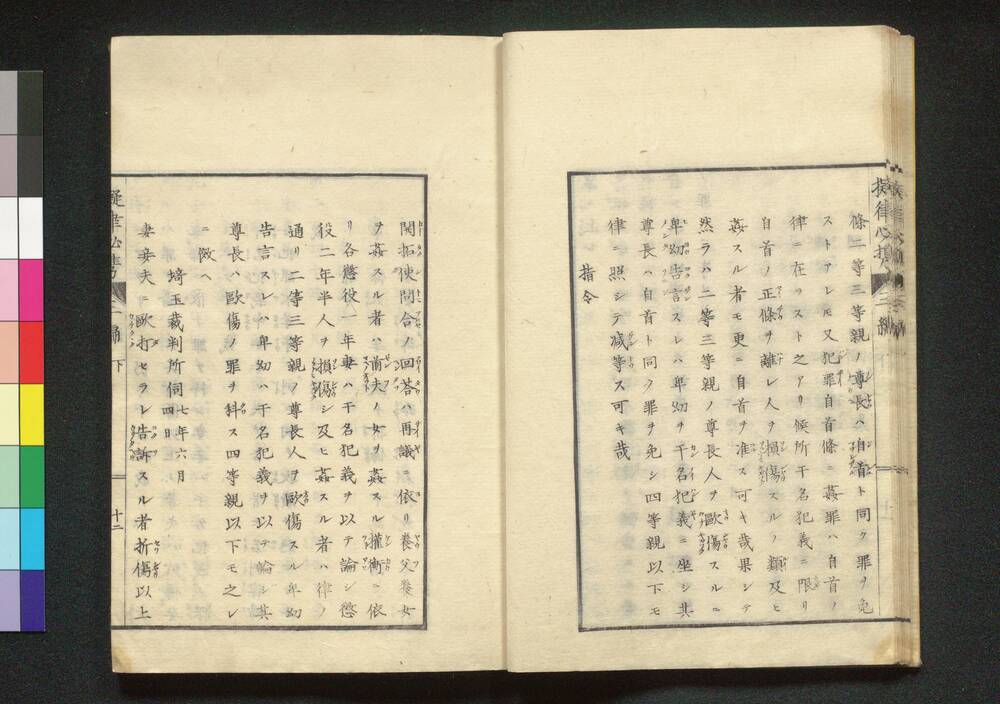 條二等三等親ノ尊長ハ自首ト同ク罪ヲ免
ストアレモ又犯罪自首條ニ姦罪ハ自首ノ
律ニ在ラスト之アリ候所干名犯義ニ限リ
自首ノ正條ヲ離レ人ヲ損傷スルノ類及ヒ
姦スル者モ更ニ自首ヲ准ス可キ哉果シテ
然ラハ二等三等親ノ尊長人ヲ毆傷スルニ
卑幼告言スレハ卑幼ヲ干名犯義ニ坐シ其
尊長ハ自首ト同ク罪ヲ免シ四等親以下モ
律ニ照シテ減等ス可キ哉
指令
開拓使問合ノ回答ハ再議ニ依リ養父養女
ヲ姦スル者ハ前夫ノ女ヲ姦スル權衡ニ依
リ各懲役一年妻ハ干名犯義ヲ以テ論シ懲
役二年半人ヲ損傷シ及ヒ姦スル者ハ律ノ
通リ二等三等親ノ尊長人ヲ毆傷スル卑幼
告言スレハ卑幼ハ干名犯義ヲ以テ論シ其
尊長ハ毆傷ノ罪ヲ科ス四等親以下モ之レ
ニ傚へ
埼玉裁判所伺七年六月四日
妻妾夫ニ毆打セラレ告訴スル者折傷以上
下
十二